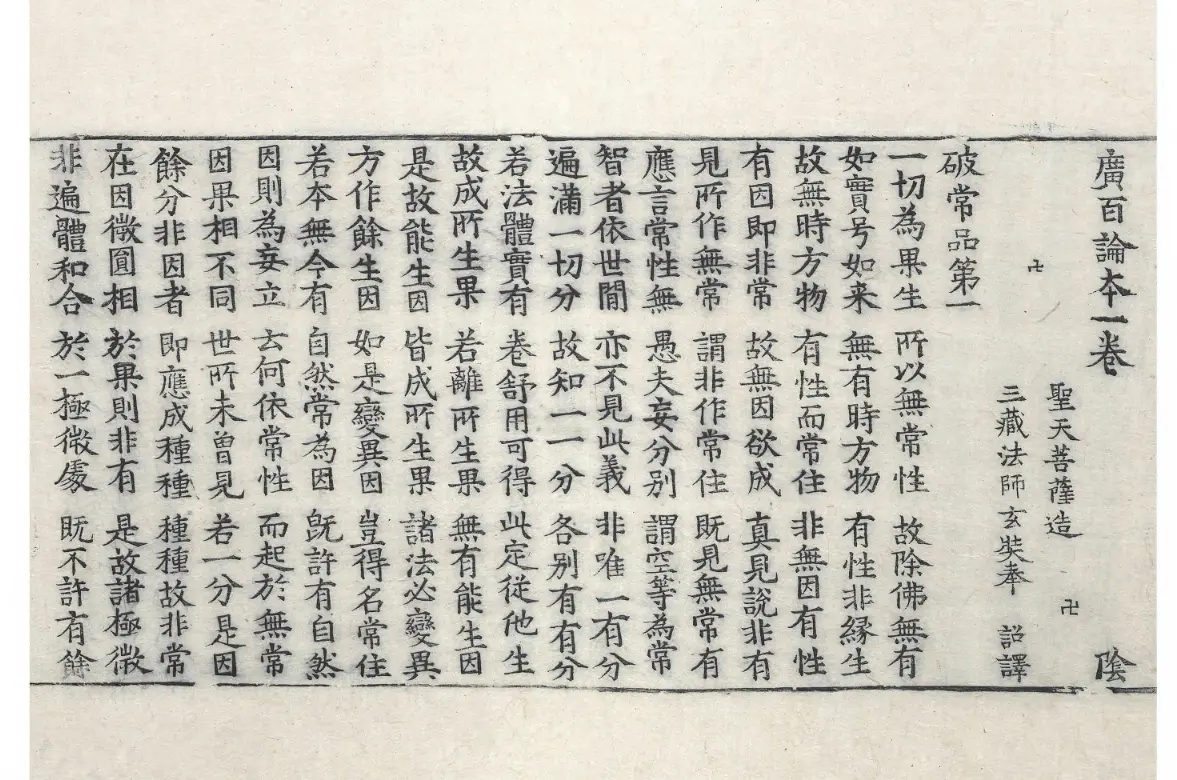 廣百論本一卷 陰
聖天菩薩造 卍
卍 三藏法師玄奘奉 詔譯
破常品第一
一切為果生 所以無常性 故除佛無有
如實号如来 無有時方物 有性非緣生
故無時方物 有性而常住 非無因有性
有因即非常 故無因欲成 真見說非有
見所作無常 謂非作常住 既見無常有
應言常性無 愚夫妄分別 謂空等為常
智者依世間 亦不見此義 非唯一有分
遍滿一切分 故知一一分 各别有有分
若法體實有 卷舒用可得 此定從他生
故成所生果 若離所生果 無有能生因
是故能生因 皆成所生果 諸法必變異
方作餘生因 如是變異因 豈得名常住
若本無今有 自然常為因 既許有自然
因則為妄立 云何依常性 而起於無常
因果相不同 世所未曾見 若一分是因
餘分非因者 即應成種種 種種故非常
在因微圓相 於果則非有 是故諸極微
非遍體和合 於一極微處 既不許有餘